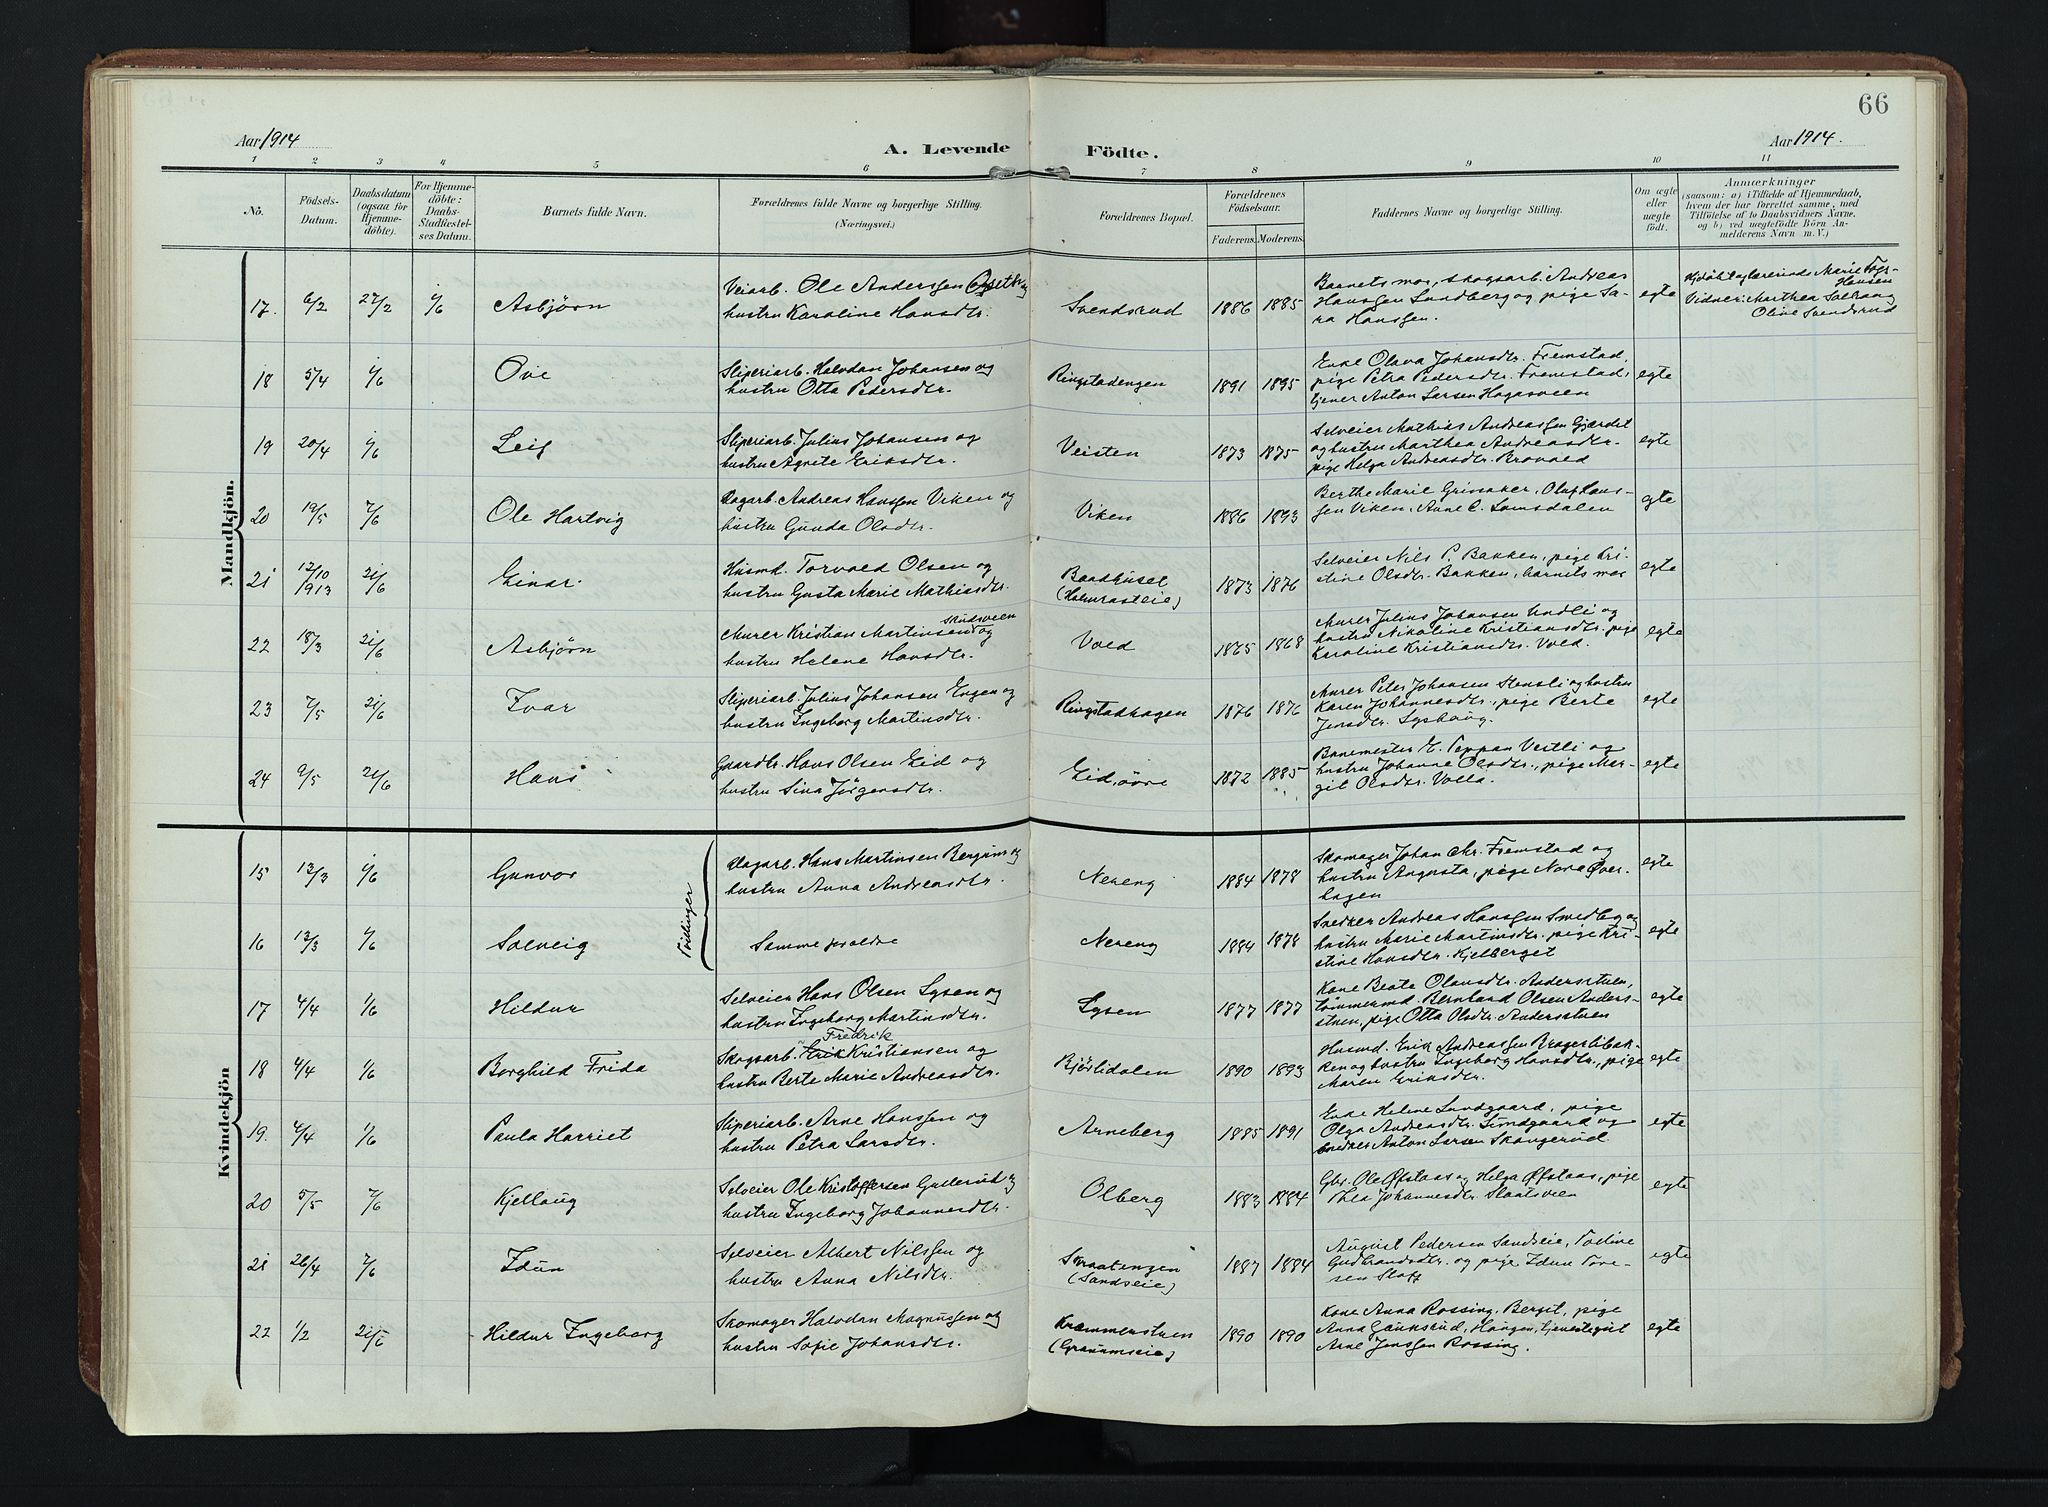 66
Aar 1914
A. Levende Födte.
Aar 1914.
1 2 3 4 5 6 7 8 9 10 11
No.
Födsels-
Datum.
Daabsdatum
(ogsaa for
Hjemme-
döbte).
For Hjemme-
döbte:
Daabs-
Stadfæstel-
ses Datum.
Barnets fulde Navn.
Forældrenes fulde Navne og borgerlige Stilling.
(Næringsvei.)
Forældrenes Bopæl.
Forældrenes
Födselsaar.
Faderens. Moderens.
Faddernes Navne og borgerlige Stilling.
Om ægte
eller
uægte
födt.
Anmærkninger
(saasom: a) i Tilfælde af Hjemmedaab,
hvem der har forrettet samme, med
Tilföielse af to Daabsvidners Navne,
og b) ved uægtefödte Börn An-
melderens Navn m. V.)
Mandkjön.
17. 6/2 27/2 1/6 Asbjørn
Veiarb. Ole Anderssen
hustru Karoline Hansdtr.
Svendsrud 1886 1885
Barnets mor, skogsarb. Andreas
Hanssen Sundberg og pige Sa-
ra Hanssen.
egte
Marie
Hansen
Vidner: Marthea
Olive Svendsrud
18 5/4 1/6 Ove
Sliperiarb. Halvdan Johansen og
hustru Otta Pedersdtr.
Ringstadengen 1891 1895
Enke Olava Johansdtr. Fremstad,
pige Petra Pedersdtr. Fremstad,
tjener Anton Larsen Hagasveen
egte
19 20/4 1/6 Leif
Sliperiarb. Julius Johansen og
hustru Agnete Eriksdtr.
Veisten 1873 1875
Selveier Mathias Andreassen Gjærdet
og hustru Marthea Andreasdtr.
pige Helga Andreasdtr. Brovold
egte
20 19/5 7/6 Ole Hartvig
Dagarb. Andreas Hanssen Viken og
hustru Gunda Olsdtr.
Viken 1886 1893
Berthe Marie Grinaker, Oluf Hans-
sen Viken, Anne C. Lomsdalen
egte
21 12/10 1913 21/6 Einar
Husmd. Torvald Olsen og
hustru Gusta Marie Mathiasdtr.
Baadhuset
1873 1876
Selveier Nils P. Bakken, pige Kri-
stine Olsdtr. Bakken, barnets mor
egte
22 18/3 21/6 Asbjørn
Skudsveen
Murer Kristian Martinsen og
hustru Helene Hansdtr.
Vold 1865 1868
Murer Julius Johansen Undli og
hustru Nikoline Kristiansdtr. pige
Karoline Kristiansdtr. Vold.
egte
23 7/5 21/6 Ivar
Sliperiarb. Julius Johansen Engen og
hustru Ingeborg Martinsdtr.
Ringstadhagen 1876 1876
Murer Peter Johansen Stensli og hustru
Karen Johannesdtr., pige Berte
Jensdtr.
egte
24 9/5 21/6 Hans
Gaardbr. Hans Olsen Eid og
hustru Sina Jørgensdtr.
Eid, øvre 1872 1885
Banemester E. Peppan Vestli og
hustru Johanne Olsdtr., pige Mar-
git Olsdtr. Volla.
egte
Kvindekjön
15 13/3 1/6 Gunvor
Tvillinger
Dagarb. Hans Martinsen Bergum og
hustru Anna Andreasdtr.
Nereng 1884 1878
Skomager Johan Chr. Fremstad og
hustru Augusta, pige Nora Øver-
hagen
egte
16 13/3 1/6 Solveig
Samme foreldre
Nereng 1884 1878
Snedker Andreas Hanssen Smedby og
hustru Marie Martinsdtr. pige Kri-
stine Hansdtr. Kjelberget
egte
17 4/4 1/6 Hildur
Selveier Hans Olsen Lysen og
hustru Ingeborg Martinsdtr.
Lysen 1877 1877
Kone Beate Olavsdtr. Andersstuen,
tømmermd. Bernhard Olsen Anders-
stuen, pige Otta Olsdtr. Andersstuen
egte
18 4/4 1/6 Borghild Frida
Fredrik
Skogsarb. Erik Kristiansen og
hustru Berte Marie Andreasdtr.
Bjørlidalen 1890 1893
Husmd. Erik Andreassen Bragerlibak-
ken og hustru Ingeborg Hansdtr., pige
Maren Eriksdtr.
egte
19. 4/4 1/6 Paula Harriet
Sliperiarb. Arne Hanssen og
hustru Petra Larsdtr.
Arneberg 1885 1891
Enke Helene Lundgaard, pige
Olga Andreasdtr. Lundgaard og
snedker Anton Larsen Skangerud.
egte
20 5/5 7/6 Kjellaug
Selveier Ole Kristoffersen Gullerud og
hustru Ingeborg Johannesdtr.
Olberg 1883 1884
Gbr. Ole Øfstaas og Helga Øfstaas, pige
Thea Johannesdtr. Slaatsveen
egte
21 26/4 7/6 Idun
Selveier Albert Nilssen og
hustru Anna Nilsdtr.
Skraatengen
(Sandseie)
1887 1884
August Pedersen Sandseie, Todine
Gudbrandsdtr. og pige Idun Tore-
sen Stoff
egte
22 1/2 21/6 Hildur Ingeborg
Skomager Halvdan Magnussen og
hustru Sofie Johansdtr.
Krammerstuen
(Graumseie)
1890 1890
Kone Anna Rossing, Bergit, pige
Anna Gauksrud, Haugen, tjenestegut
Arne Jenssen Rossing.
egte